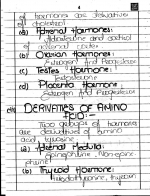 of hormones are derivative
of cholesterol
(a) Adrenal Hormones:
Aldosterone and cortisol
of adrenal cortex
(b) Ovarian Hormones:
Estrogen And Progesterone
(c) Testes Hormones:
Testosterone
(d) Placenta Hormone
Estrogen And Progesterone
DERIVATIVES OF AMINO
ACID:-
Two groups of hormones
are derivatives of amino
acid
(a) Adrenal Medulla:
Epinephrine, Norepine
phrine
(b) Thyroid Hormone: